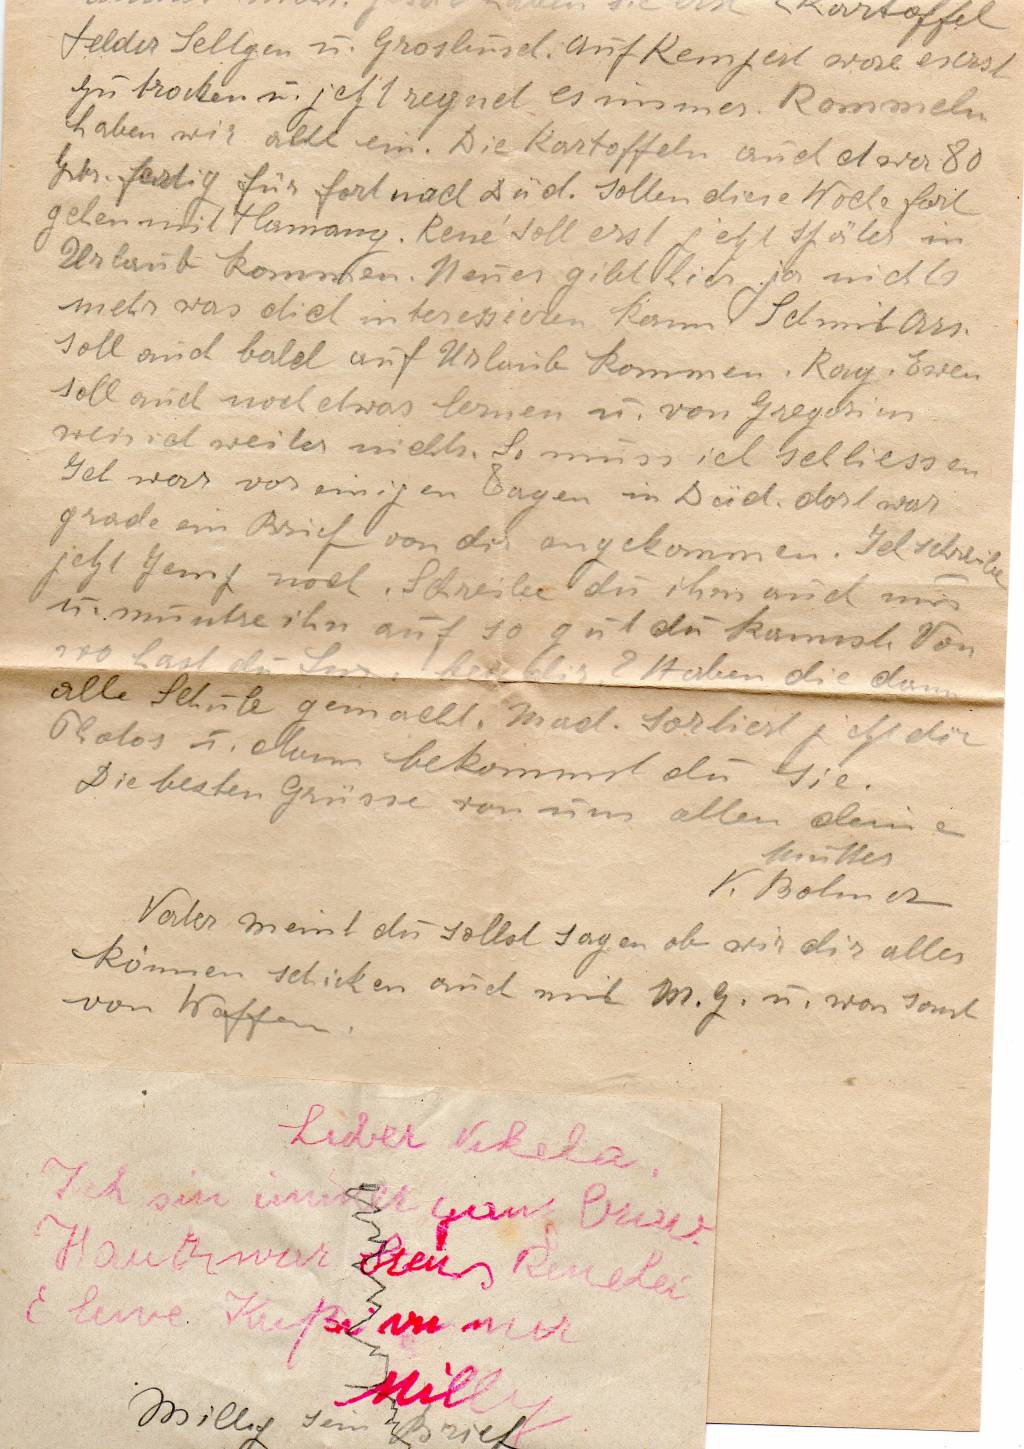 haben sie erst Kartoffel
Felder Seltgen u. Grosbusch. Auf Kempert ware es erst
zu trocken u. jetzt regnet es immer. Rommeln
haben wir alle ein. Die Kartoffeln auch etwa 80
fertig für fort nach Düd. sollen diese Woche fort
gehen mit Hamang. René soll erst jetzt später in
Urlaub kommen. Neues gibt hier ja nichts
mehr was dich interessieren kann. Schmit Ars.
soll auch bald auf Urlaub kommen. Ray. Ewen
soll auch noch etwas lernen u. von Gregorius
weis ich weiter nichts. So muss ich schliessen
Ich war vor einigen Tagen in Düd. dort war
grade ein Brief von dir angekommen. Ich schreibe
jetzt Jemp noch. Schreibe du ihm auch nur
u. muntre ihn auf so gut du kannst. Von
wo hast du bei dir? Haben die dann
alle Schule gemacht. Mad. sortiert jetzt die
Photos u. dann bekommst du sie.
Die besten Grüsse von uns allen deine
Mutter
V. Bohmer
Vater meint du sollst sagen ob wir dir alles
können schicken auch mit M.G. u. was sonst
von Waffen.
Lieber Nikela.
Ich sin immer ganz braw.
Haut war Benelei
E leiwe Kuß vu mir
Milly
Milly sein Brief